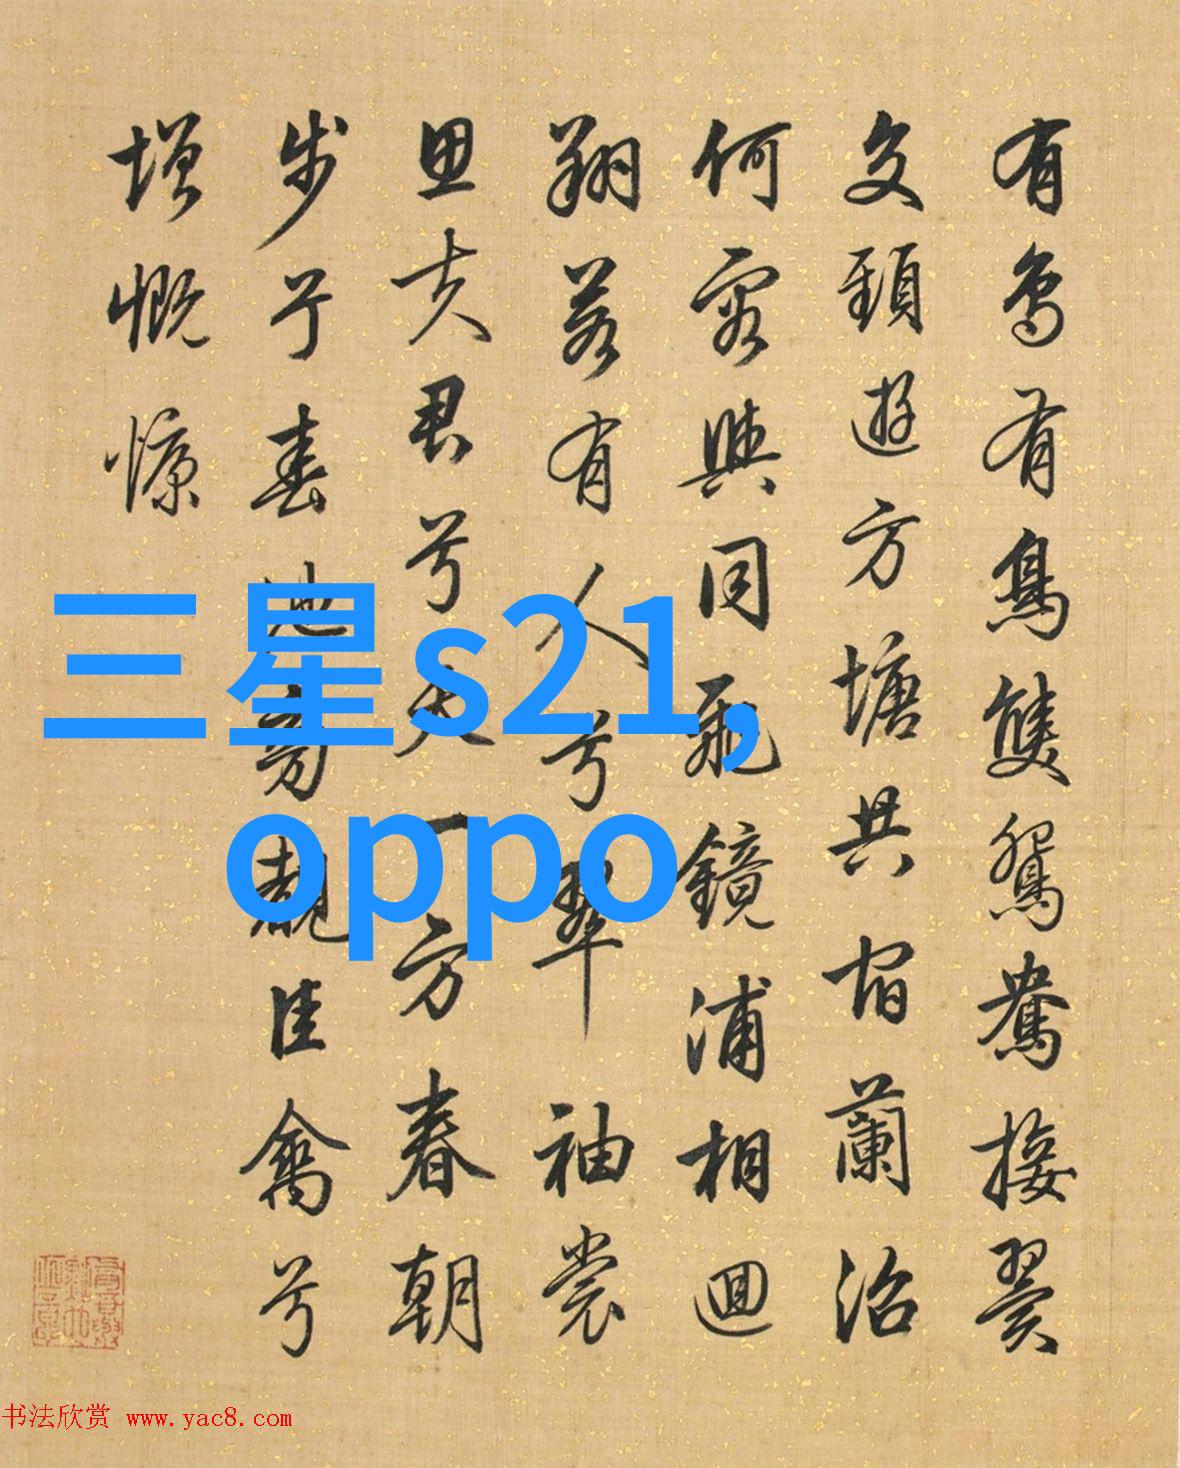 有鸟有鳥雙鴛鴦接翼
交頸遊方塘共宿蘭沼
何容與同飛鏡浦相迴
翔若有人兮翠袖裳
思夫君兮天一方春朝
步兮春池旁觀佳禽兮
增慨慷
三星s21,
oppo
书法欣赏 www.yac8.com